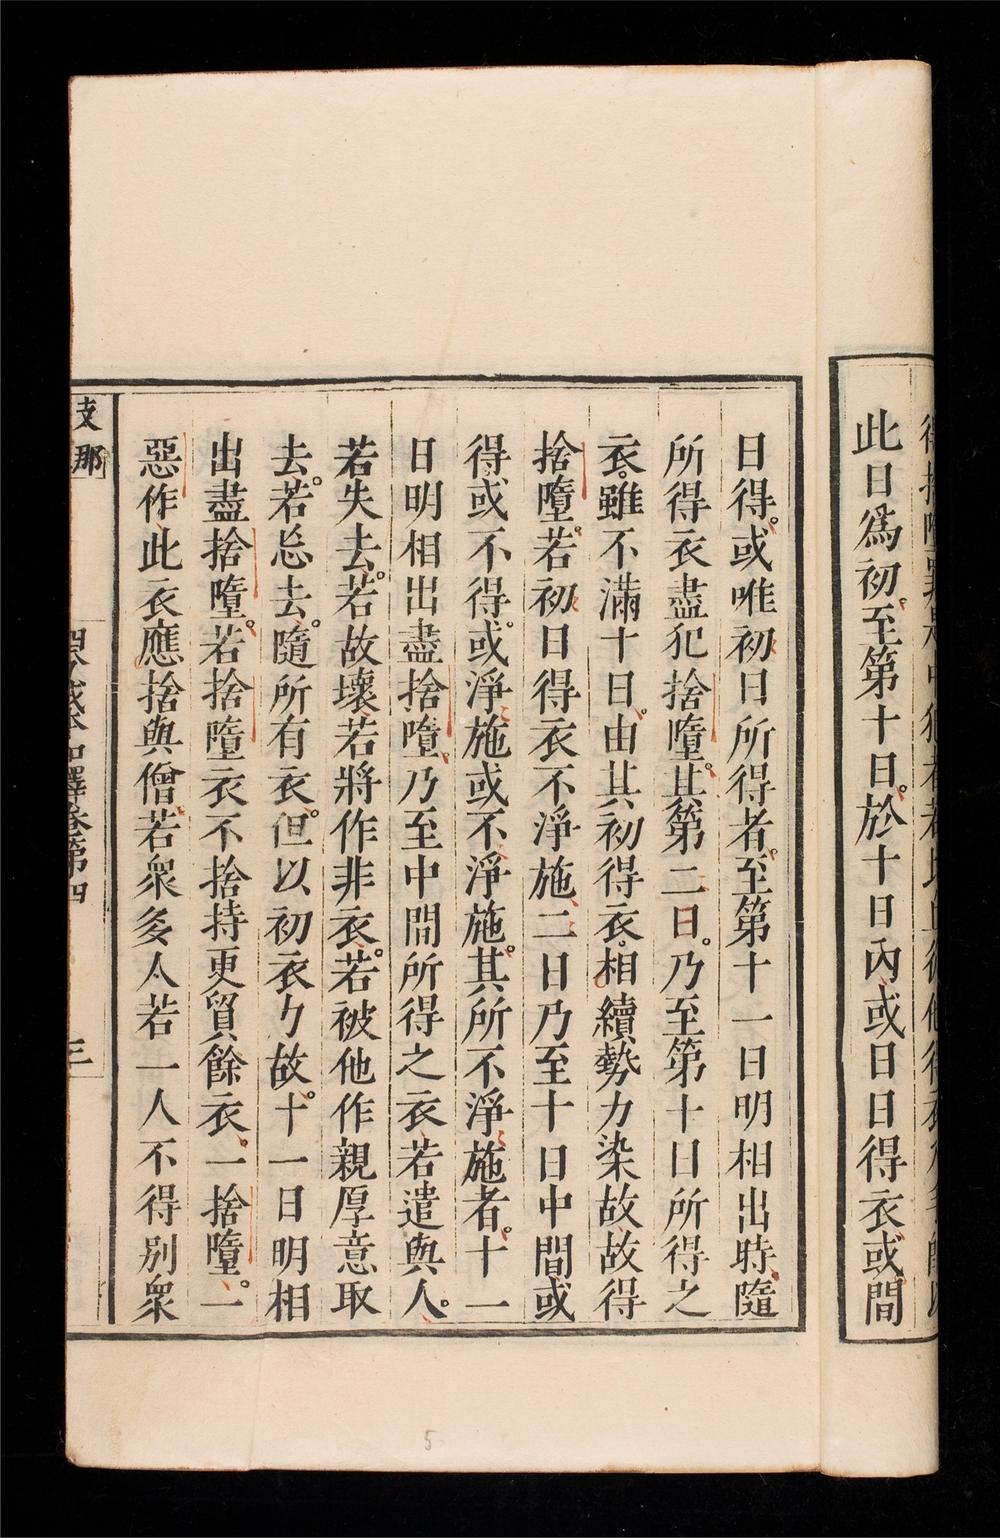 此日爲初至第十日於十日內或日日得衣或間
日得或唯初日所得者至第十一日明相出時隨
所得衣盡犯捨墮其第二日乃至第十日所得之
衣雖不滿十日由其初得衣相續勢力染故故得
捨墮若初日得衣不淨施二日乃至十日中間或
得或不得或淨施或不淨施其所不淨施者十一
日明相出盡捨墮乃至中間所得之衣若遣與人
若失去若故壞若將作非衣若被他作親厚意取
去若忘去隨所有衣但以初衣力故十一日明相
出盡捨墮若捨墮衣不捨持更貿餘衣一捨墮一
惡作此衣應捨與僧若衆多人若一人不得別衆
支那
卷第四
三
5